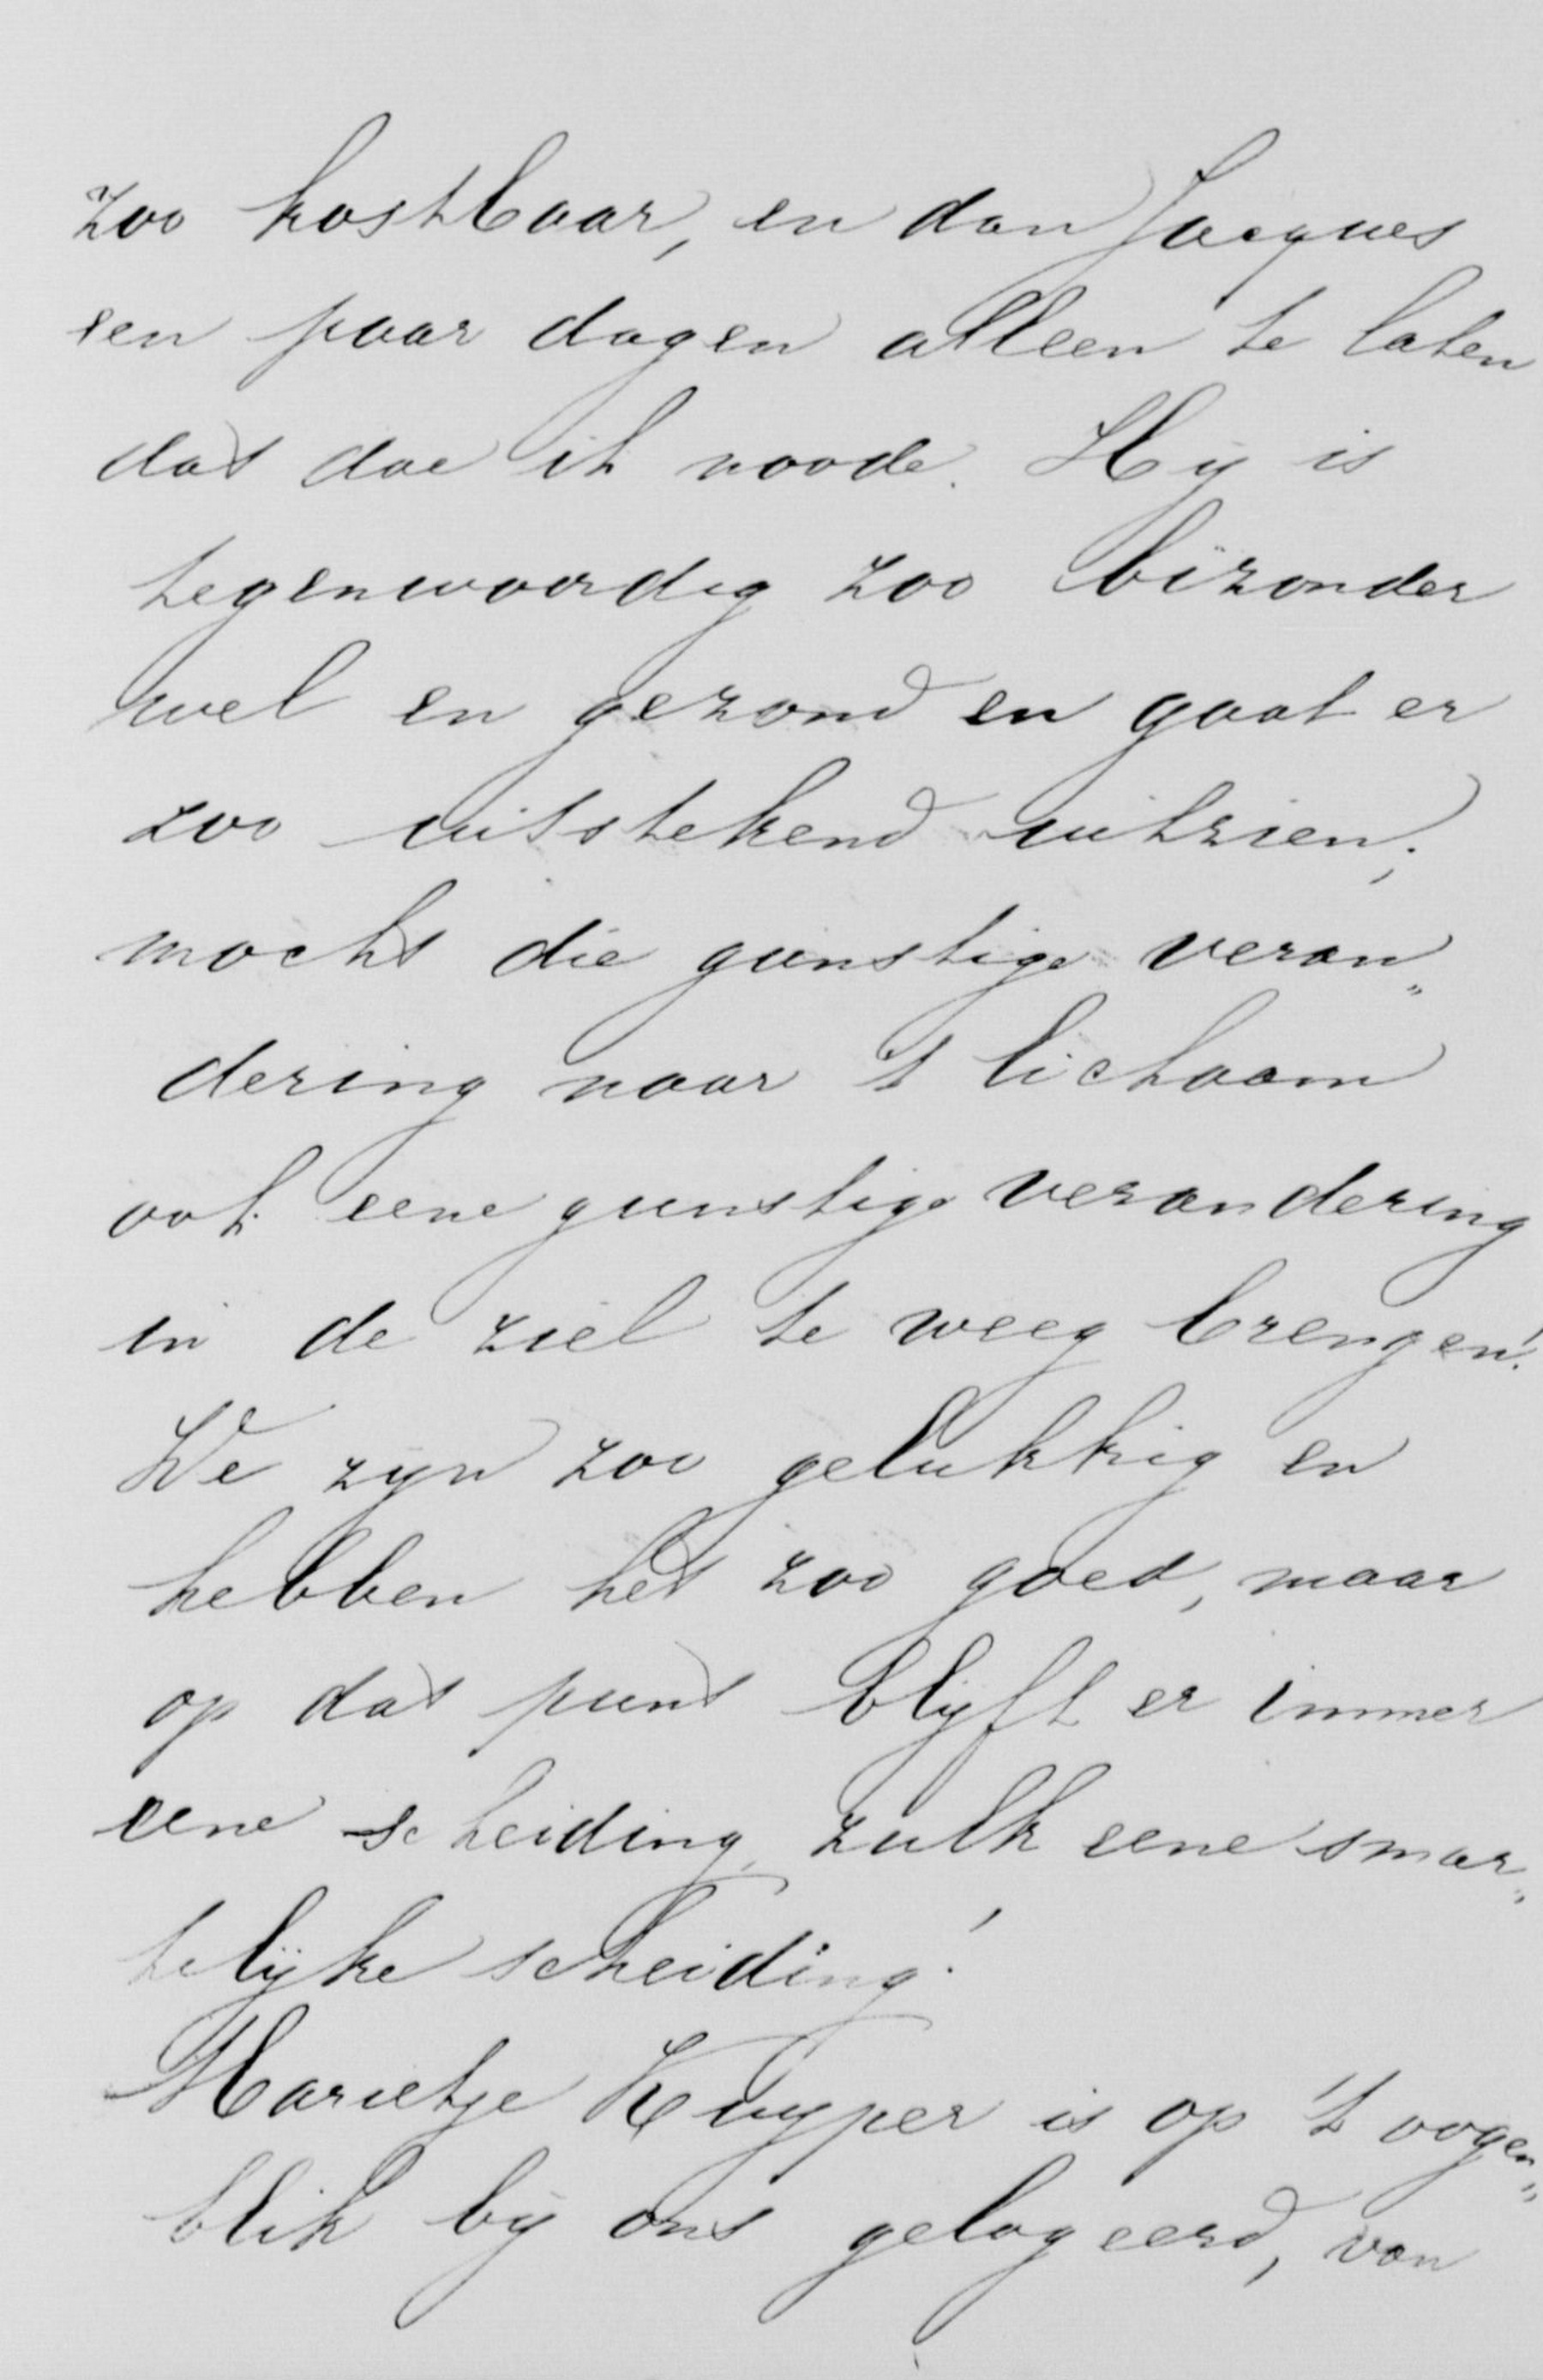 zoo kostbaar, en dan Jacques
een paar dagen alleen te laten
dat doe ik noode. Hij is
tegenwoordig zoo bizonder
wel en gezond en gaat er
zoo uitstekend uitzien;
mocht die gunstige veran„
dering naar 't lichaam
ook eene gunstige verandering
in de ziel te weeg brengen!
We zijn zoo gelukkig en
hebben het zoo goed, maar
op dat punt blijft er immer
eene scheiding, zulk eene smar„
telijke scheiding!
Marietje Kuyper is op 't oogen„
blik bij ons gelogeerd, van